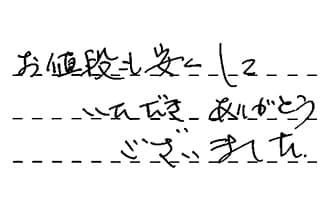 お値段も安くして
いただき ありがとう
ございました.